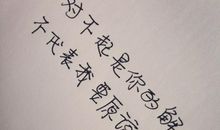 对不起是你的解
不代表我要原谅